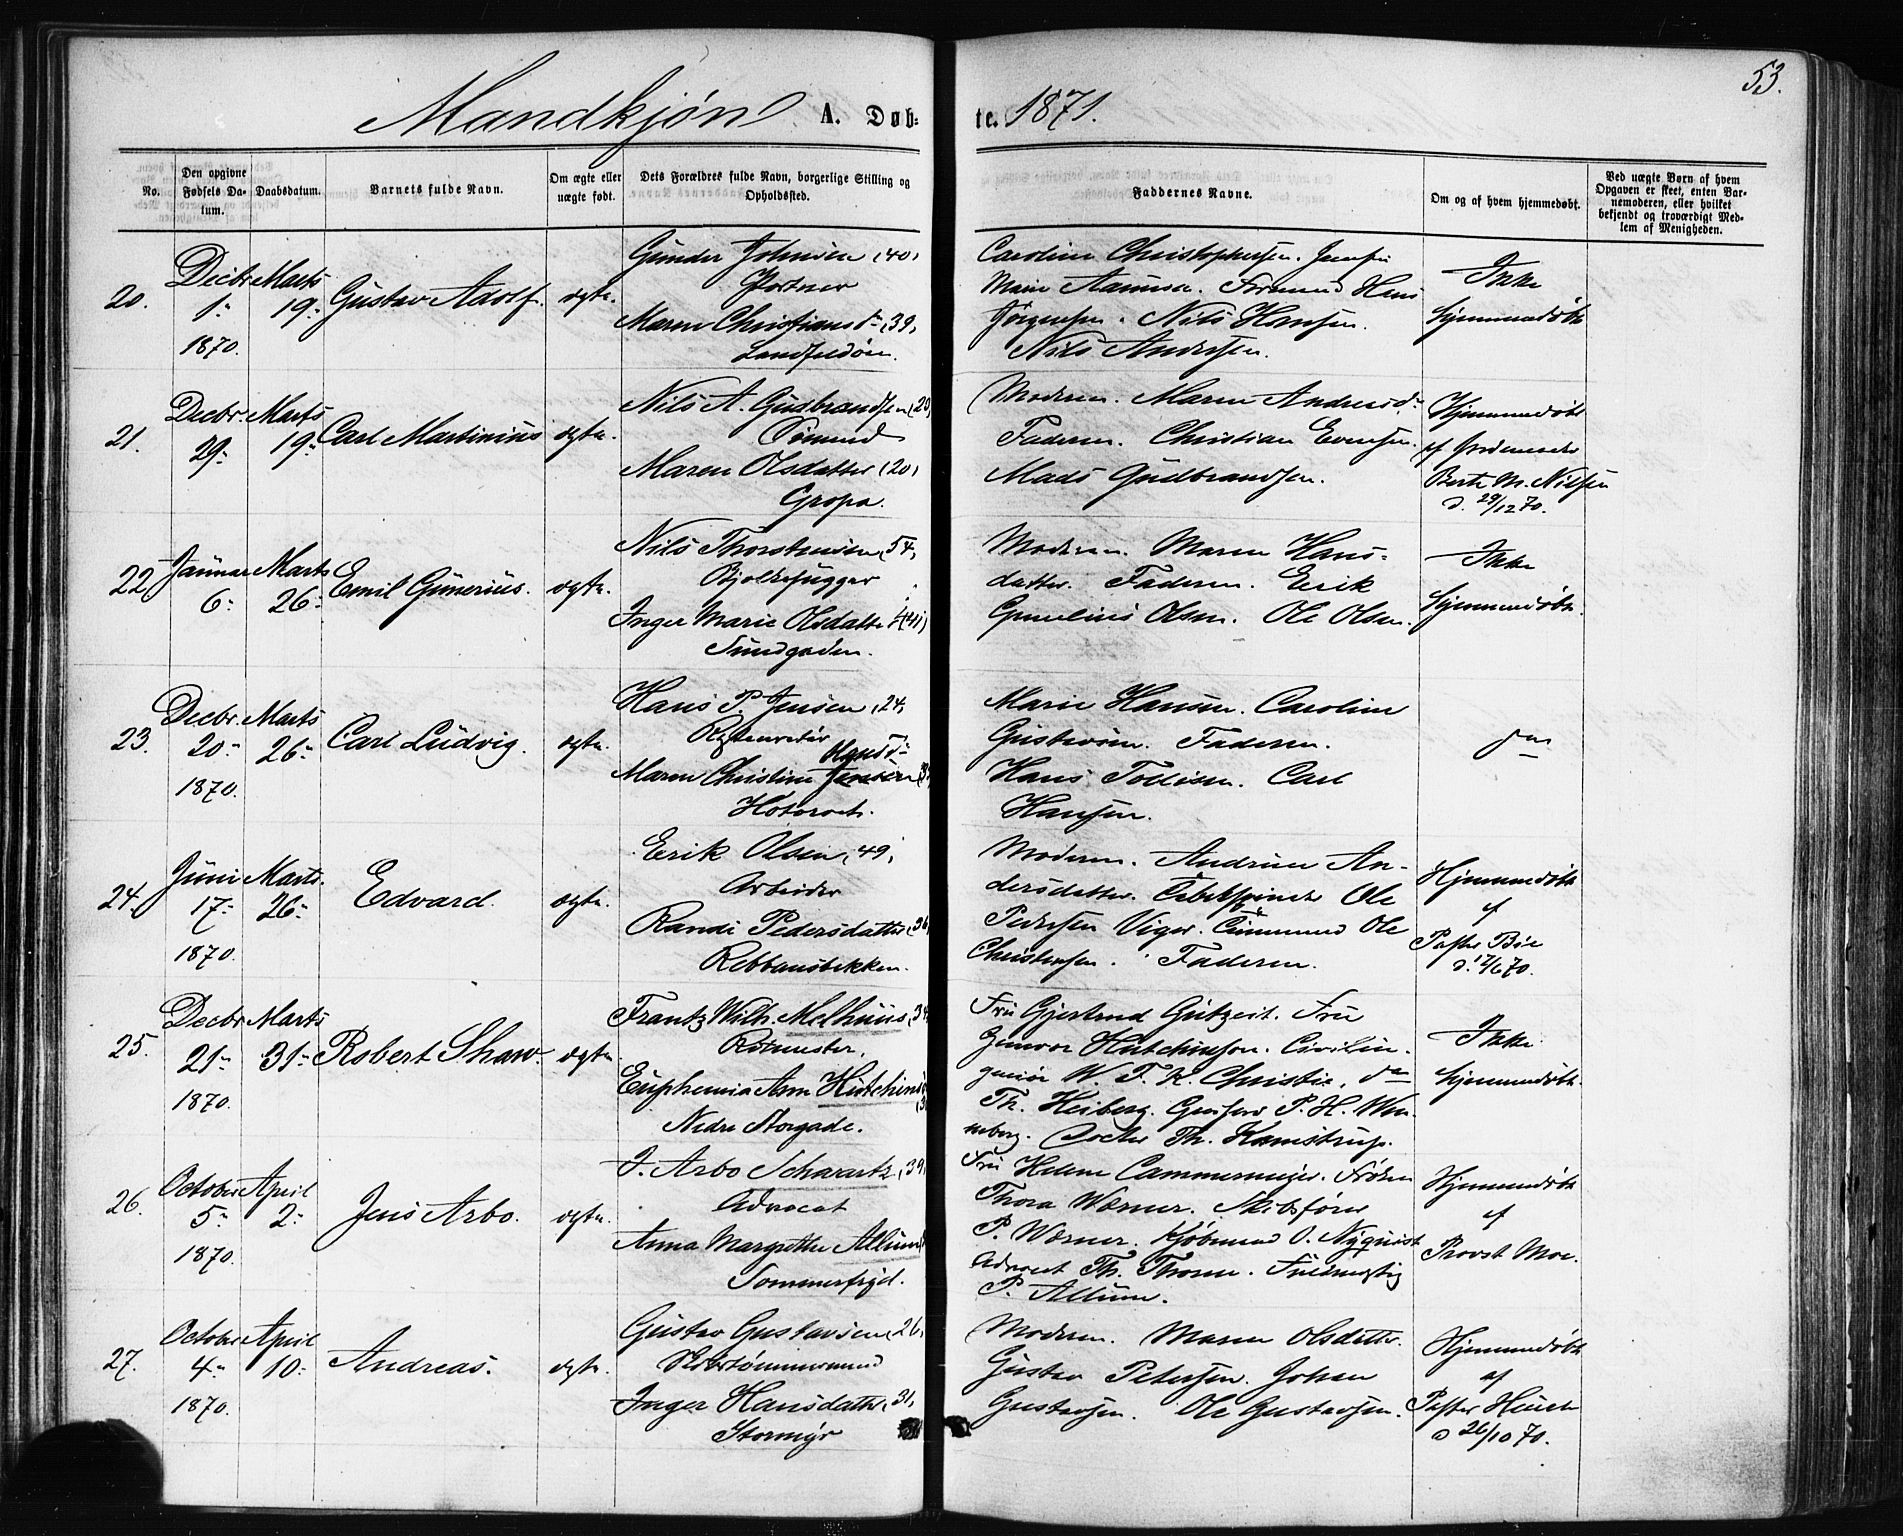 53.
Mandkjøn A. Døb- te. 1871.
No.
Den opgivne Fødsels Da- tum.
Daabsdatum.
Barnets fulde Navn.
Om ægte eller uægte født.
Dets Forældres fulde Navn, borgerlige Stilling og Opholdssted.
Faddernes Navne.
Om og af hvem hjemmedøbt.
Ved uægte Børn af hvem Opgaven er skeet, enten Bar- nemoderen, eller hvilket bekjendt og troværdigt Med- lem af Menigheden.
20. Decbr 1 1870. Marts 19 Gustav Adolf. ægte.
Gunder Johnsen (40)
Portner
Maren Christiansd (39)
Caroline Christophersen.
Marie Formand Hans
Jørgensen. Nils Hansen.
Nils Andersen.
Ikke
hjemmedøbt
21. Decbr. 29 Marts 19 Carl Martinius ægte.
Nils A. Gudbrandsen (23)
Tømmd
Maren Olsdatter (20)
Gropa.
Moderen. Maren Andersd
Faderen. Christian Evensen.
Mads Gudbrandsen.
Hjemmedøbt
af Jordemoder
Berte M. Nilsen
d. 29/12 70.
22 Januar 6 Marts 26 Emil Gunerius. ægte.
Nils Thorstensen (54)
Bjelkehugger
Inger Marie Olsdatter (41)
Sundgaden.
Moderen. Maren Hans-
datter. Faderen. Erik
Olsen. Ole Olsen.
Ikke
hjemmedøbt.
23. Decbr. 20 1870. Marts 26 Carl Ludvig. ægte.
Hans P. Jensen (24)
Maren Christine Jensen Hansd
Høtorvet.
Marie Hansen. Caroline
Gustavsen. Faderen.
Hans Carl
Hansen.
do
24. Juni 17 1870. Marts 26 Edvard. ægte.
Erik Olsen (49)
Arbeider
Randi Pedersdatter (36)
Rebbansbekken.
Moderen. Andrine An-
dersdatter. Ole
Pedersen Viger. Ole
Christensen. Faderen.
Hjemmedøbt
af
Pastor Bøe
d. 17/6 70.
25. Decbr 21 1870. Marts 31 Robert Shaw. ægte.
Frantz Wilh. Melhuus (34)
Ritmester.
Euphemia Ann Hutchinson
Nedre Storgade.
Fru Gjertrud Gutzeit. Fru
Gunvor Hutchinson. Civilin-
geniør W. F. K. Christie. do
Th. Heiberg. P. H. Wen-
neberg. Doctor Th. Kamstrup.
Ikke
hjemmedøbt.
26. October 5 1870. April 2 Jens Arbo. ægte.
J. Arbo Schwartz (39)
Advocat
Anna Margrethe Allum
Sommerfryd.
Fru Helene Cammermeyer. Frøken
Thora Wærner. Skibsfører
P. Wærner. Kjøbmand O. Nyquist
Advocat Th. Thorne. Fuldmægtig
P. Allum.
Hjemmedøbt
af
Provst Moe.
27. October 4 1870. April 10 Andreas. ægte.
Gustav Gustavsen (26)
Skibstømmermand
Inger Hansdatter (31)
Stormyr
Moderen. Maren Olsdatter.
Gustav Petersen. Johan
Gustavsen. Ole Gustavsen.
Hjemmedøbt
af
d 26/10 70.